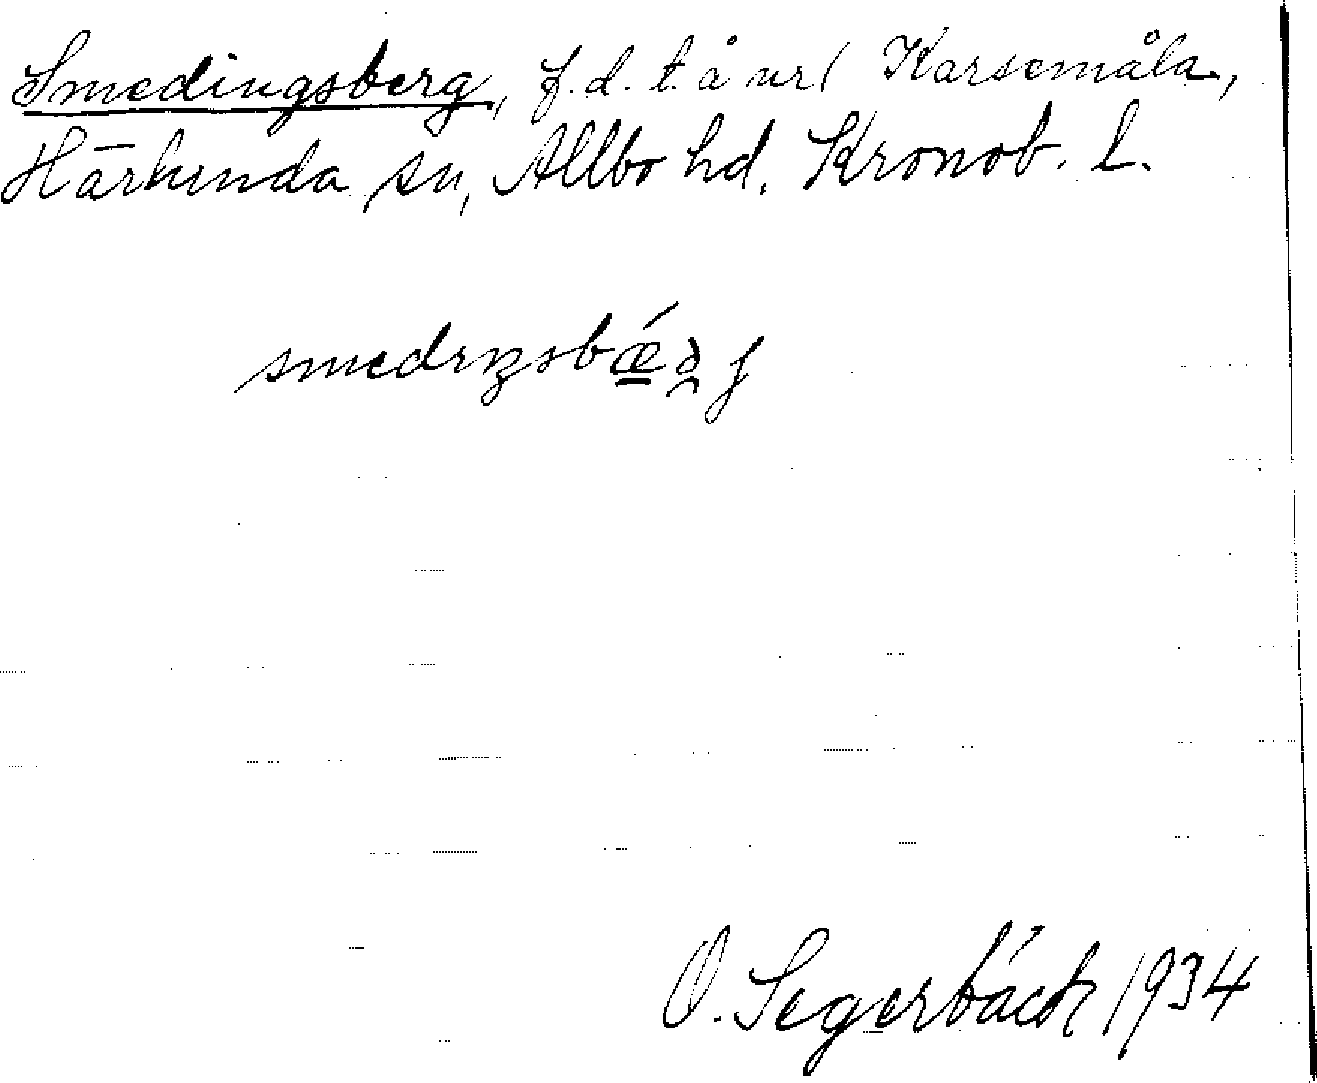 Smedingsberg, f.d. t. å nr 1 Karsemåla,
Härlunda sn, Allbo hd. Kronob. L.
O. Segerbäck 1934